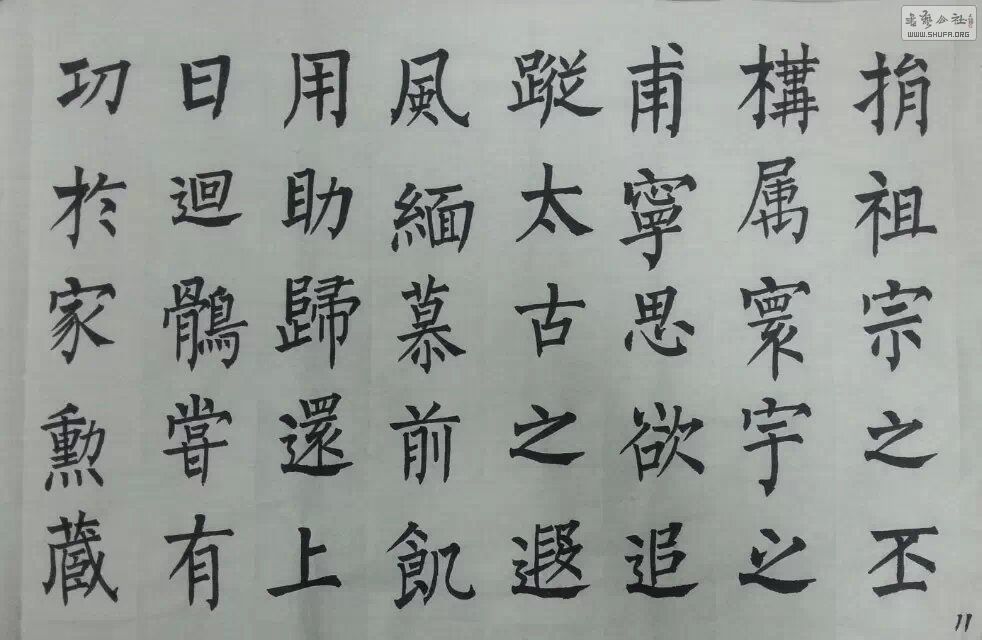 捐祖宗之丕
構属寰宇之
甫寧思欲追
蹤太古之遐
風緬慕前飢
用助歸還上
日迴鶻嘗有
功於家勳藏
11
书艺公社
WWW.SHUFA.ORG